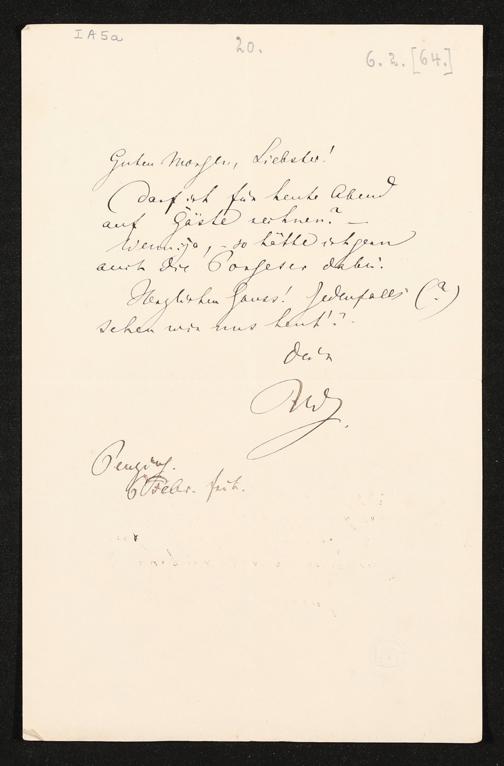 I A 5a
20.
6. 2. [64.]
Guten Morgen, Liebster!
Darf ich für heute Abend
auf Gäste rechnen? —
Wenn ja, – so hätte ich gern
auch die Porgeser dabei.
Herzlichen Gruss! Jedenfalls (?)
sehen wir uns heut'?
Dein
Penzing.
6 Febr. früh.